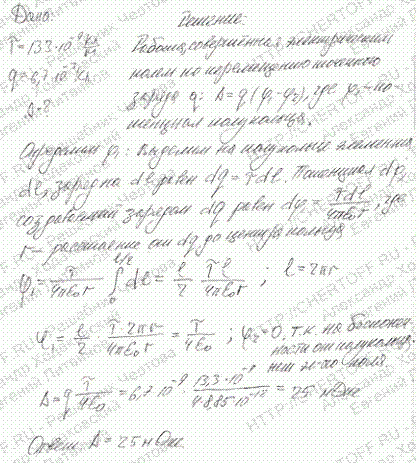 Дано:
Решение:
τ = 133·10⁻⁹ Кл/м
q = 6,7·10⁻⁹ Кл
A - ?
Работа, совершённая электрическим
полем по перемещению точечного
заряда q: A = q(φ₁-φ₂), где φ₁ - по-
тенциал полукольца.
Определим φ₁: Выделим на полукольце элемент
dl, заряд на dl равен dq = τdl. Потенциал dφ,
создаваемый зарядом dq равен dφ₁ = τdl/4πε₀r, где
r - расстояние от dq до центра кольца
φ₁ = τ/4πε₀r ∫₀^{l/2} dl = l/2 τl/4πε₀r ; l = 2πr
φ₁ = 1/2 τ·2πr/4πε₀r = τ/4ε₀ ; φ₂ = 0, т.к. на бесконеч-
ности от полукольца
нет эл-го поля
A = q τ/4ε₀ = 6,7·10⁻⁹ · 13,3·10⁻⁹/4·8,85·10⁻¹² = 25 мкДж
Ответ: A = 25 мкДж.